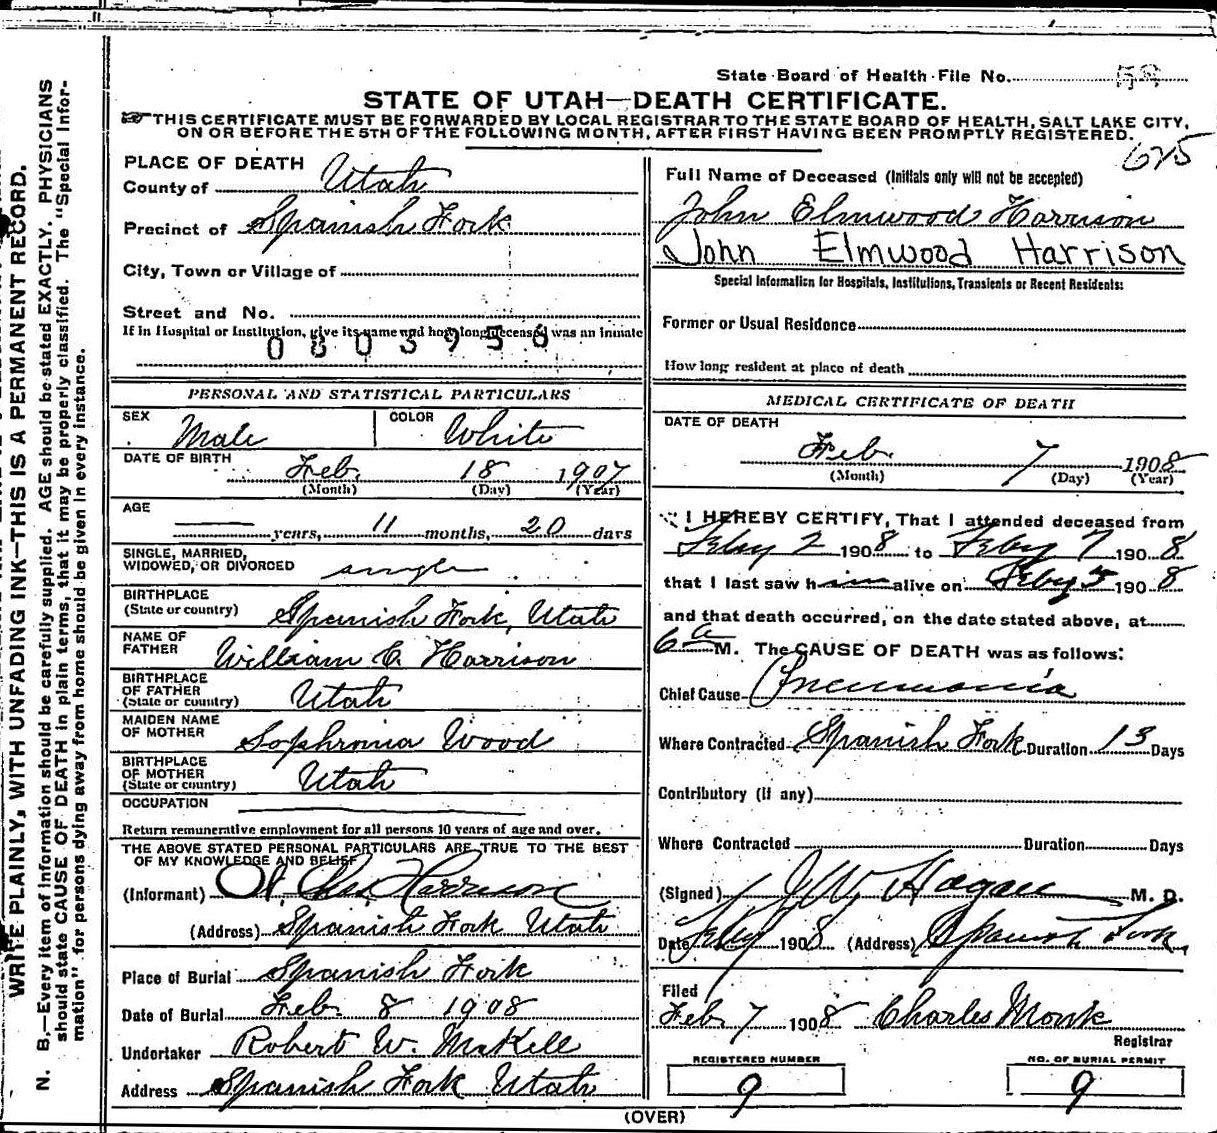 State Board of Health File No. 58
STATE OF UTAH—DEATH CERTIFICATE.
THIS CERTIFICATE MUST BE FORWARDED BY LOCAL REGISTRAR TO THE STATE BOARD OF HEALTH, SALT LAKE CITY,
ON OR BEFORE THE 5TH OF THE FOLLOWING MONTH, AFTER FIRST HAVING BEEN PROMPTLY REGISTERED.
625
WRITE PLAINLY, WITH UNFADING INK—THIS IS A PERMANENT RECORD.
N. B.—Every item of information should be carefully supplied. AGE should be stated EXACTLY. PHYSICIANS
should state CAUSE OF DEATH in plain terms, that it may be properly classified. The "Special Infor-
mation" for persons dying away from home should be given in every instance.
PLACE OF DEATH
County of Utah
Precinct of Spanish Fork
City, Town or Village of
Street and No.
If in Hospital or Institution, give its name and how long deceased was an inmate
0803956
PERSONAL AND STATISTICAL PARTICULARS
SEX Male COLOR White
DATE OF BIRTH Feb. 18 1907
(Month) (Day) (Year)
AGE
years, 11 months, 20 days
SINGLE, MARRIED,
WIDOWED, OR DIVORCED single
BIRTHPLACE
(State or country) Spanish Fork, Utah
NAME OF
FATHER William C. Harrison
BIRTHPLACE
OF FATHER
(State or country) Utah
MAIDEN NAME
OF MOTHER Sophronia Wood
BIRTHPLACE
OF MOTHER
(State or country) Utah
OCCUPATION
Return remunerative employment for all persons 10 years of age and over.
THE ABOVE STATED PERSONAL PARTICULARS ARE TRUE TO THE BEST
OF MY KNOWLEDGE AND BELIEF
(Informant) Harrison
(Address) Spanish Fork Utah
Place of Burial Spanish Fork
Date of Burial Feb. 8 1908
Undertaker Robert W. McKell
Address Spanish Fork Utah
Full Name of Deceased (Initials only will not be accepted)
John Elmwood Harrison
John Elmwood Harrison
Special Information for Hospitals, Institutions, Transients or Recent Residents:
Former or Usual Residence
How long resident at place of death
MEDICAL CERTIFICATE OF DEATH
DATE OF DEATH
Feb. 7 1908
(Month) (Day) (Year)
I HEREBY CERTIFY, That I attended deceased from
Feby 2 1908 to Feby 7 1908
that I last saw him alive on Feby 5 1908
and that death occurred, on the date stated above, at
6 a M. The CAUSE OF DEATH was as follows:
Chief Cause Pneumonia
Where Contracted Spanish Fork Duration 13 Days
Contributory (if any)
Where Contracted Duration Days
(Signed) J W Hagan M. D.
Date Feby 1908 (Address) Spanish Fork,
Filed
Feb. 7 1908 Charles Monk
Registrar
REGISTERED NUMBER
9
NO. OF BURIAL PERMIT
9
(OVER)